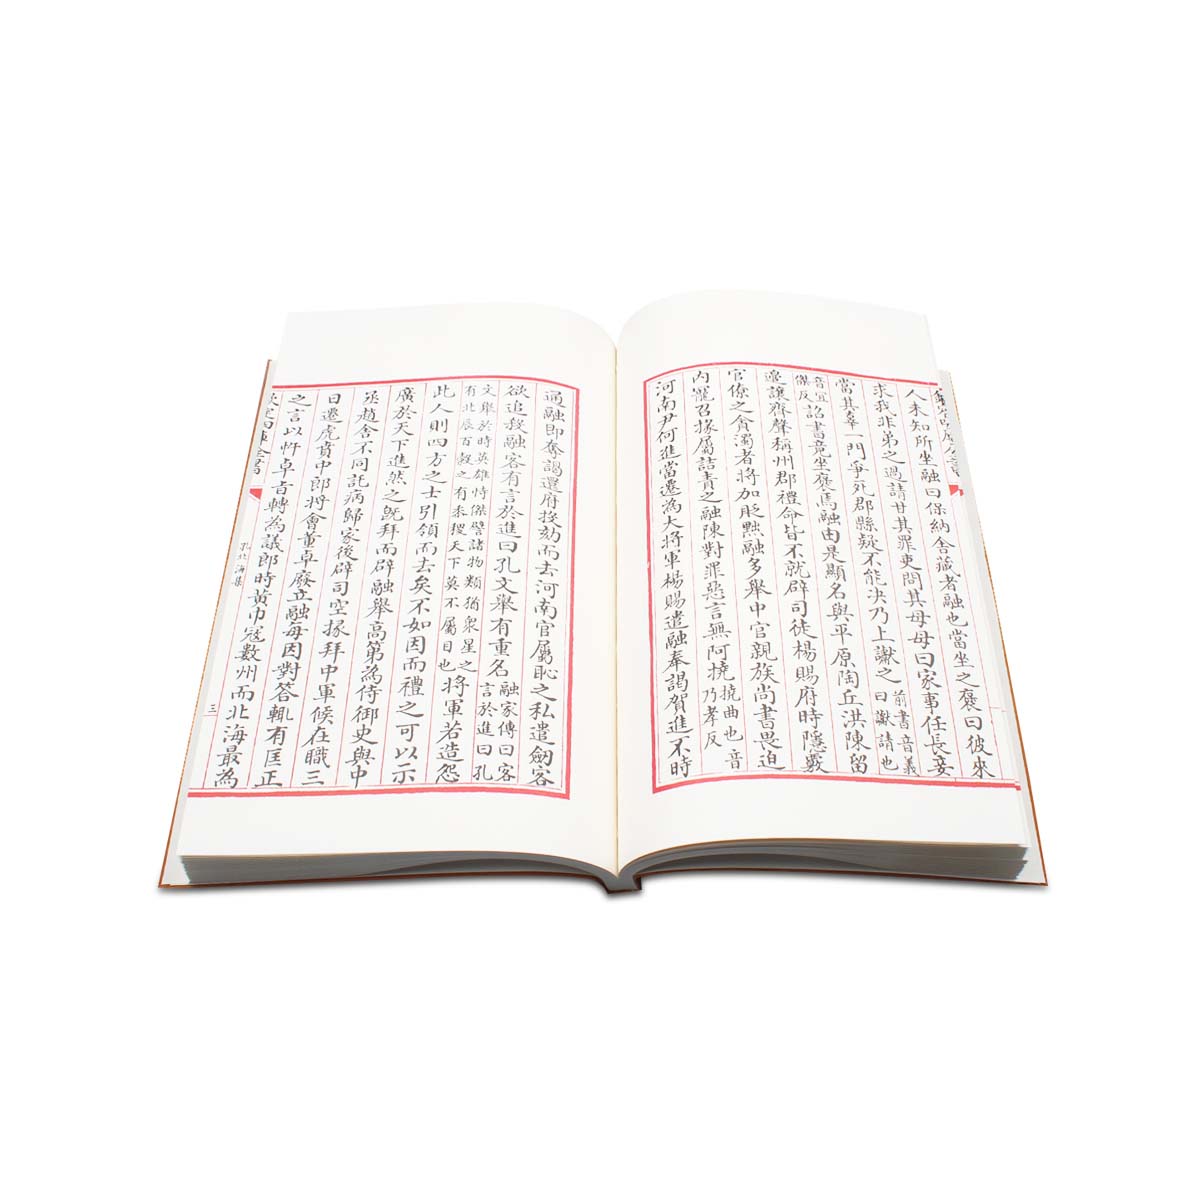 人未知所坐融曰保納舍藏者融也當坐之褒曰彼來
求我非弟之過請甘其罪吏問其母母曰家事任長妾
當其辜一門爭死郡縣疑不能決乃上讞之前書音義曰讞請也
音宜傑反詔書竟坐褒焉融由是顯名與平原陶丘洪陳留
邊讓齊聲稱州郡禮命皆不就辟司徒楊賜府時隱覈
官僚之貪濁者將加貶黜融多舉中官親族尚書畏迫
內寵召掾屬詰責之融陳對罪惡言無阿撓撓曲也音乃孝反
河南尹何進當遷為大將軍楊賜遣融奉謁賀進不時
通融即奪謁還府投劾而去河南官屬恥之私遣劒客
欲追殺融客有言於進曰孔文舉有重名融家傳曰客言於進曰孔
文舉於時英雄特傑譬諸物類猶衆星之有北辰百穀之有黍稷天下莫不屬目也將軍若造怨
此人則四方之士引領而去矣不如因而禮之可以示
廣於天下進然之既拜而辟融舉高第為侍御史與中
丞趙舍不同託病歸家後辟司空掾拜中軍候在職三
日遷虎賁中郎將會董卓廢立融每因對答輒有匡正
之言以忤卓旨轉為議郎時黃巾寇數州而北海最為
欽定四庫全書
孔北海集
三